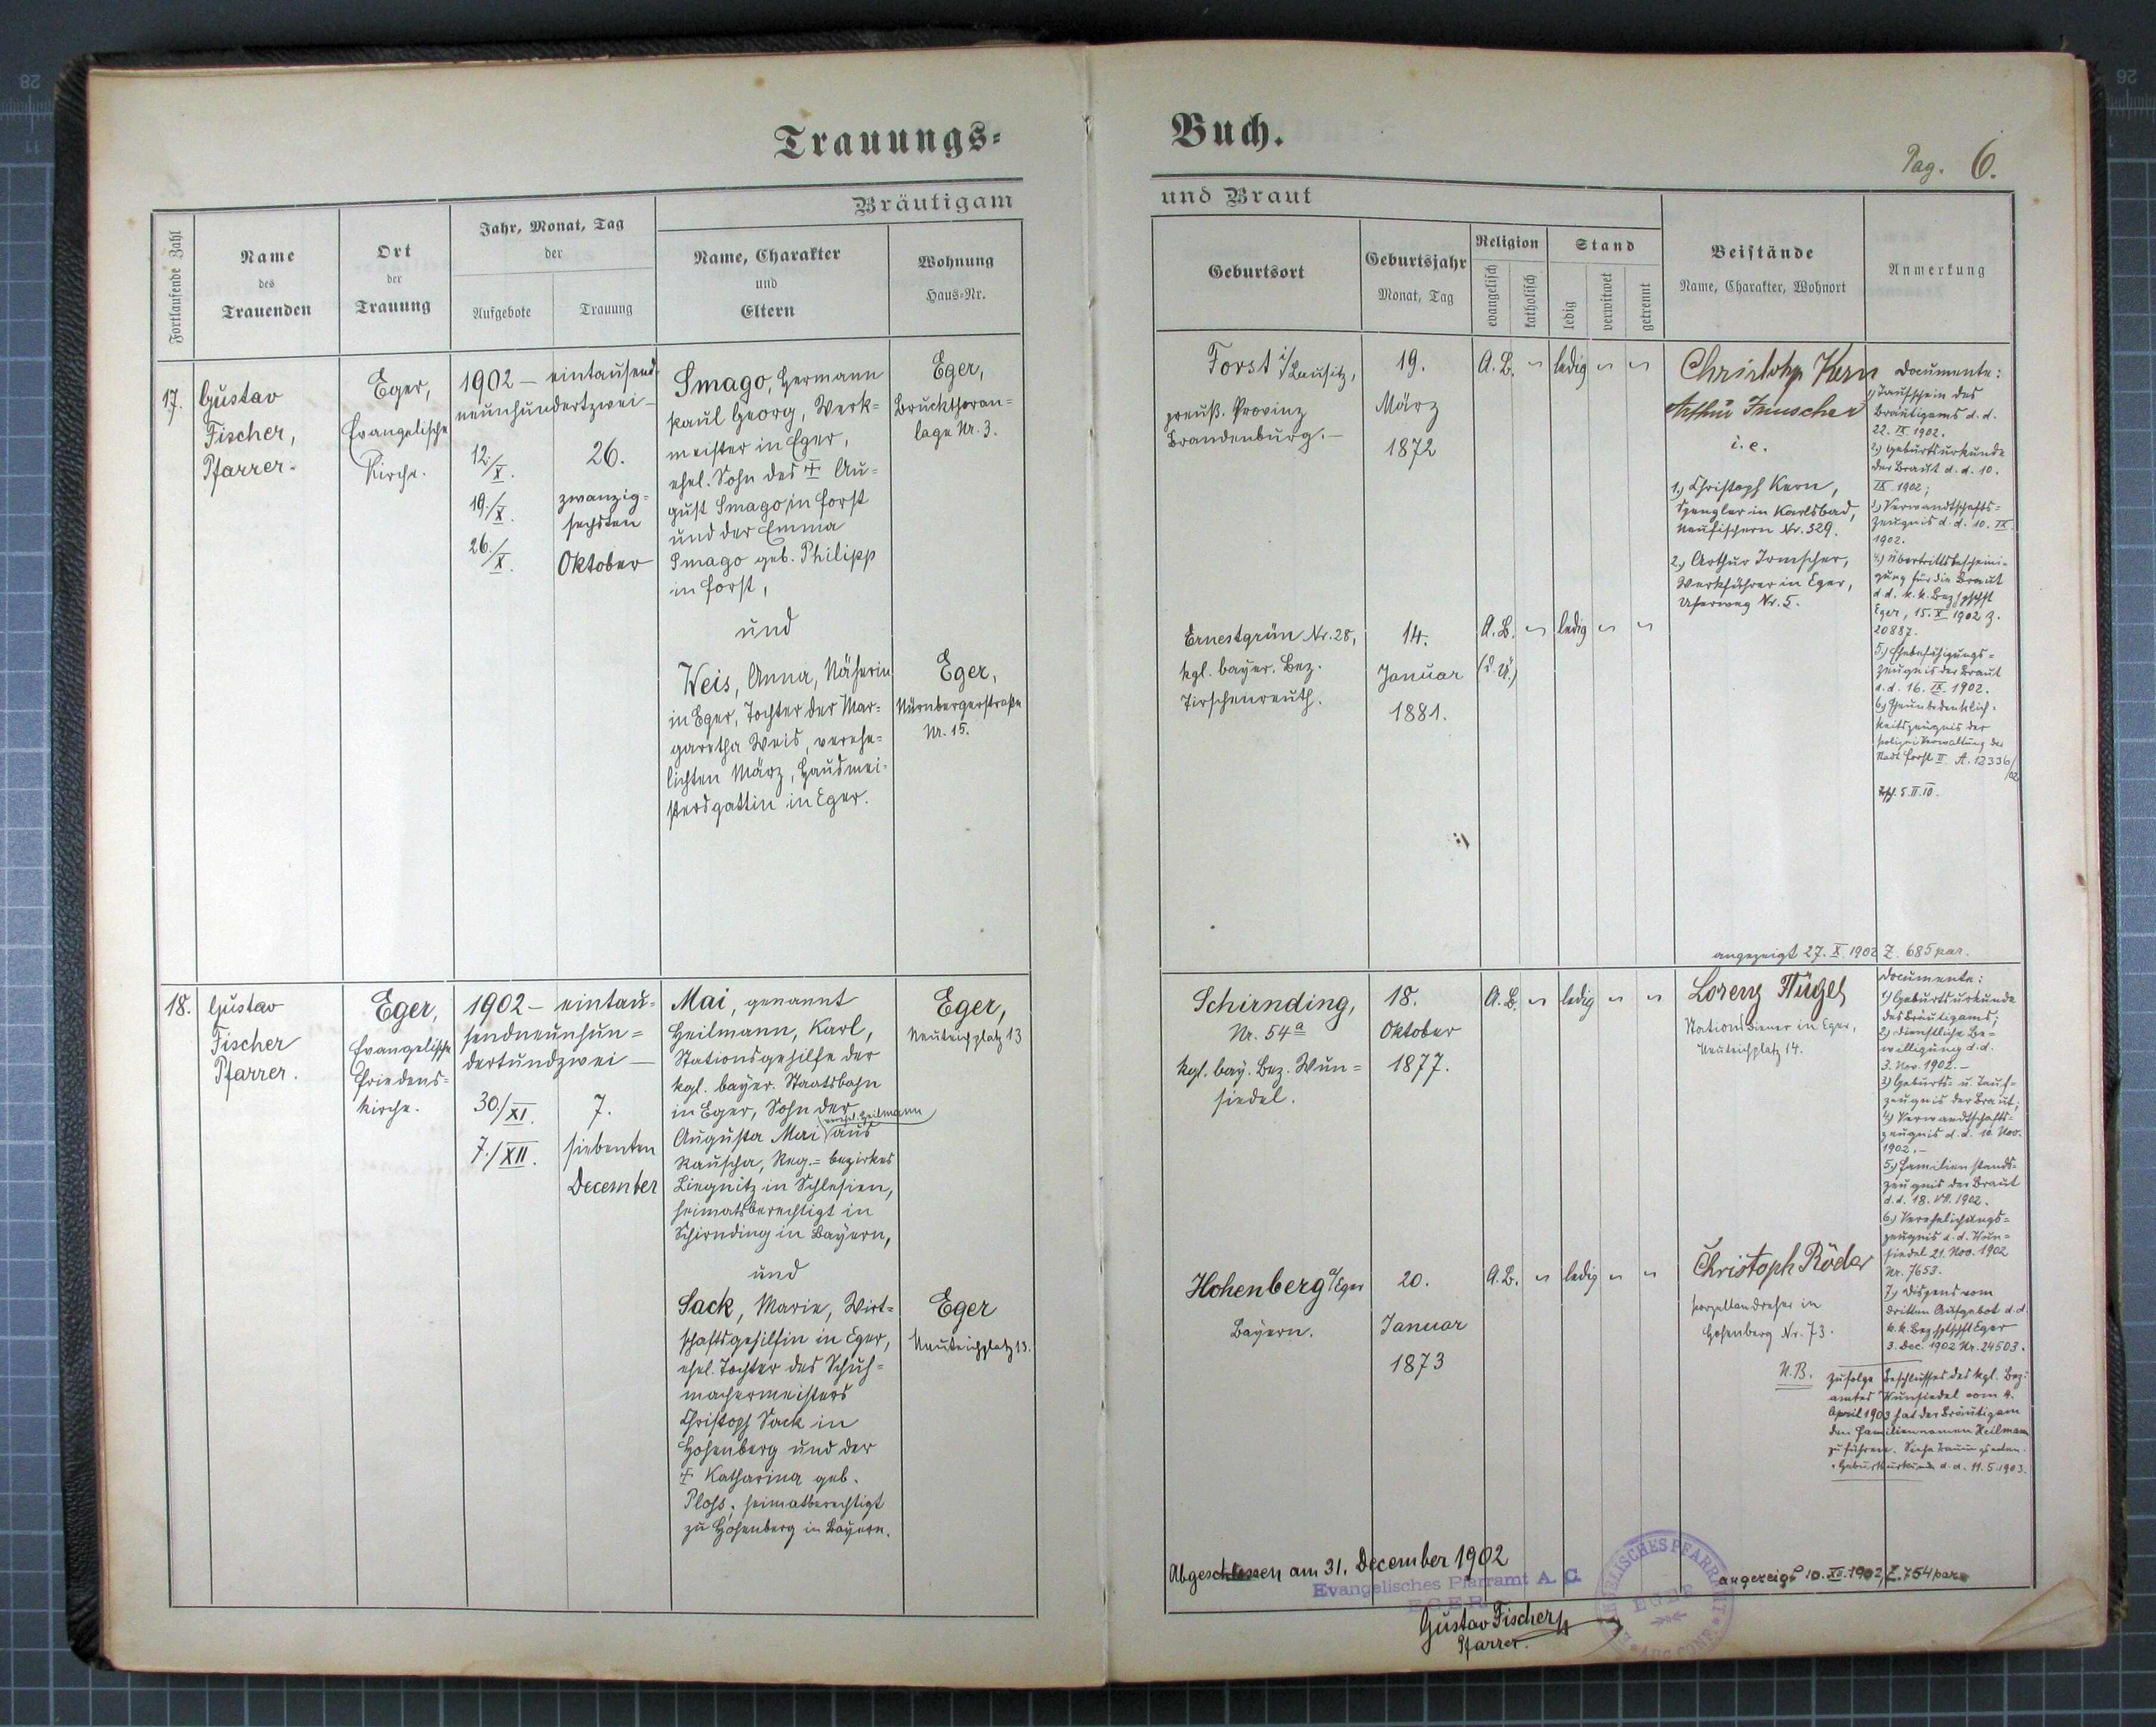 Trauungs-
Buch.
Pag. 6.
Bräutigam
und Braut
Fortlaufende Zahl
Name
des
Trauenden
Ort
der
Trauung
Jahr, Monat, Tag
der
Aufgebote
Trauung
Name, Charakter
und
Eltern
Wohnung
Haus-Nr.
Geburtsort
Geburtsjahr
Monat, Tag
Religion
evangelisch
katholisch
Stand
ledig
verwitwet
getrennt
Beistände
Name, Charakter, Wohnort
Anmerkung
17.
Gustav
Fischer,
Pfarrer.
Eger,
Evangelische
Kirche.
1902 – eintausend-
neunhundertzwei –
12./X.
19./X.
26./X.
26.
zwanzig-
sechsten
Oktober
Smago, Hermann
Paul Georg, Werk-
meister in Eger,
ehel. Sohn des ☩ Au-
gust Smago in Forst
und der Emma
Smago geb. Philipp
in Forst,
und
Weis, Anna, Näherin
in Eger, Tochter der Mar-
garetha Weis, verehe-
lichten März, Hausmei-
stersgattin in Eger.
Eger,
Bruckthoran-
lage Nr. 3.
Eger,
Nürnbergerstraße
Nr. 15.
Forst i/Lausitz,
preuß. Provinz
Brandenburg. –
19.
März
1872
A. B. " ledig " "
Ernestgrün Nr. 28,
kgl. bayer. Bez.
Tirschenreuth.
14.
Januar
1881.
A. B. " ledig " "
(d. Ü.)
Christoph Kern
Arthur Irmscher
i. e.
1.) Christoph Kern,
Spengler in Karlsbad,
Neufischern Nr. 329.
2.) Arthur Irmscher,
Werkführer in Eger,
Uferweg Nr. 5.
Documente:
1) Taufschein des
Bräutigams d. d.
22. IX. 1902.
2.) Geburtsurkunde
der Braut d. d. 10.
IX. 1902;
3.) Verwandtschafts-
zeugnis d. d. 10. IX.
1902.
4.) Übertrittsbescheini-
gung für die Braut
d. d. k. k. Bezhptschft
Eger, 15. X 1902 Z.
20887.
5.) Ehefähigungs-
zeugnis der Braut
d. d. 16. IX. 1902.
6.) Eheunbedenklich-
keitszeugnis der
Polizei Verwaltung der
Stadt Forst II. A. 12336/02
5. II. 10.
angezeigt 27. X. 1902 Z. 685 par.
18.
Gustav
Fischer
Pfarrer.
Eger,
Evangelische
Friedens-
kirche.
1902 – eintau-
sendneunhun-
dertundzwei –
30./XI.
7./XII.
7.
siebenten
December
Mai, genannt
Heilmann, Karl,
Stationsgehilfe der
kgl. bayer. Staatsbahn
in Eger, Sohn der
verehel. Heilmann
Augusta Mai aus
Rauscha, Reg.-bezirkes
Liegnitz in Schlesien,
heimatsberechtigt in
Schirnding in Bayern,
und
Sack, Marie, Wirt-
schaftsgehilfin in Eger,
ehel. Tochter des Schuh-
machermeisters
Christoph Sack in
Hohenberg und der
☩ Katharina geb.
Ploss, heimatberechtigt
zu Hohenberg in Bayern.
Eger,
Neuteichplatz 13
Eger
Neuteichplatz 13.
Schirnding,
Nr. 54a
kgl. bay. Bez. Wun-
siedel.
18.
Oktober
1877.
A. B. " ledig " "
Hohenberg a/Eger
Bayern.
20.
Januar
1873
A. B. " ledig " "
Lorenz Flügel
Stationsdiener in Eger,
Neuteichplatz 14.
Christoph Röder
Porzellandreher in
Hohenberg Nr. 73.
Documente:
1.) Geburtsurkunde
des Bräutigams;
2.) dienstliche Be-
willigung d. d.
3. Nov. 1902. –
3.) Geburts- u. Tauf-
zeugnis der Braut;
4.) Verwandtschafts-
zeugnis d. d. 10. Nov.
1902. –
5.) Familienstands-
zeugnis der Braut
d. d. 18. VII. 1902.
6.) Verehelichungs-
zeugnis d. d. Wun-
siedel 21. Nov. 1902
Nr. 7653.
7.) Dispens vom
dritten Aufgebot d. d.
k. k. Bezhptschft Eger
3. Dec. 1902 Nr. 24503.
N. B. Zufolge Beschlusses des kgl. Bez.-
amtes Wunsiedel vom 4.
April 1903 hat der Bräutigam
den Familiennamen Heilmann
zu führen. Siehe
Geburtsurkunde d. d. 11. 5. 1903.
Abgeschlossen am 31. December 1902
Evangelisches Pfarramt A. C.
EGER
Gustav Fischer
Pfarrer.
angezeigt 10. XII. 1902, Z. 754 par.
EVANGELISCHES PFARRAMT * AUG. CONF. *
EGER